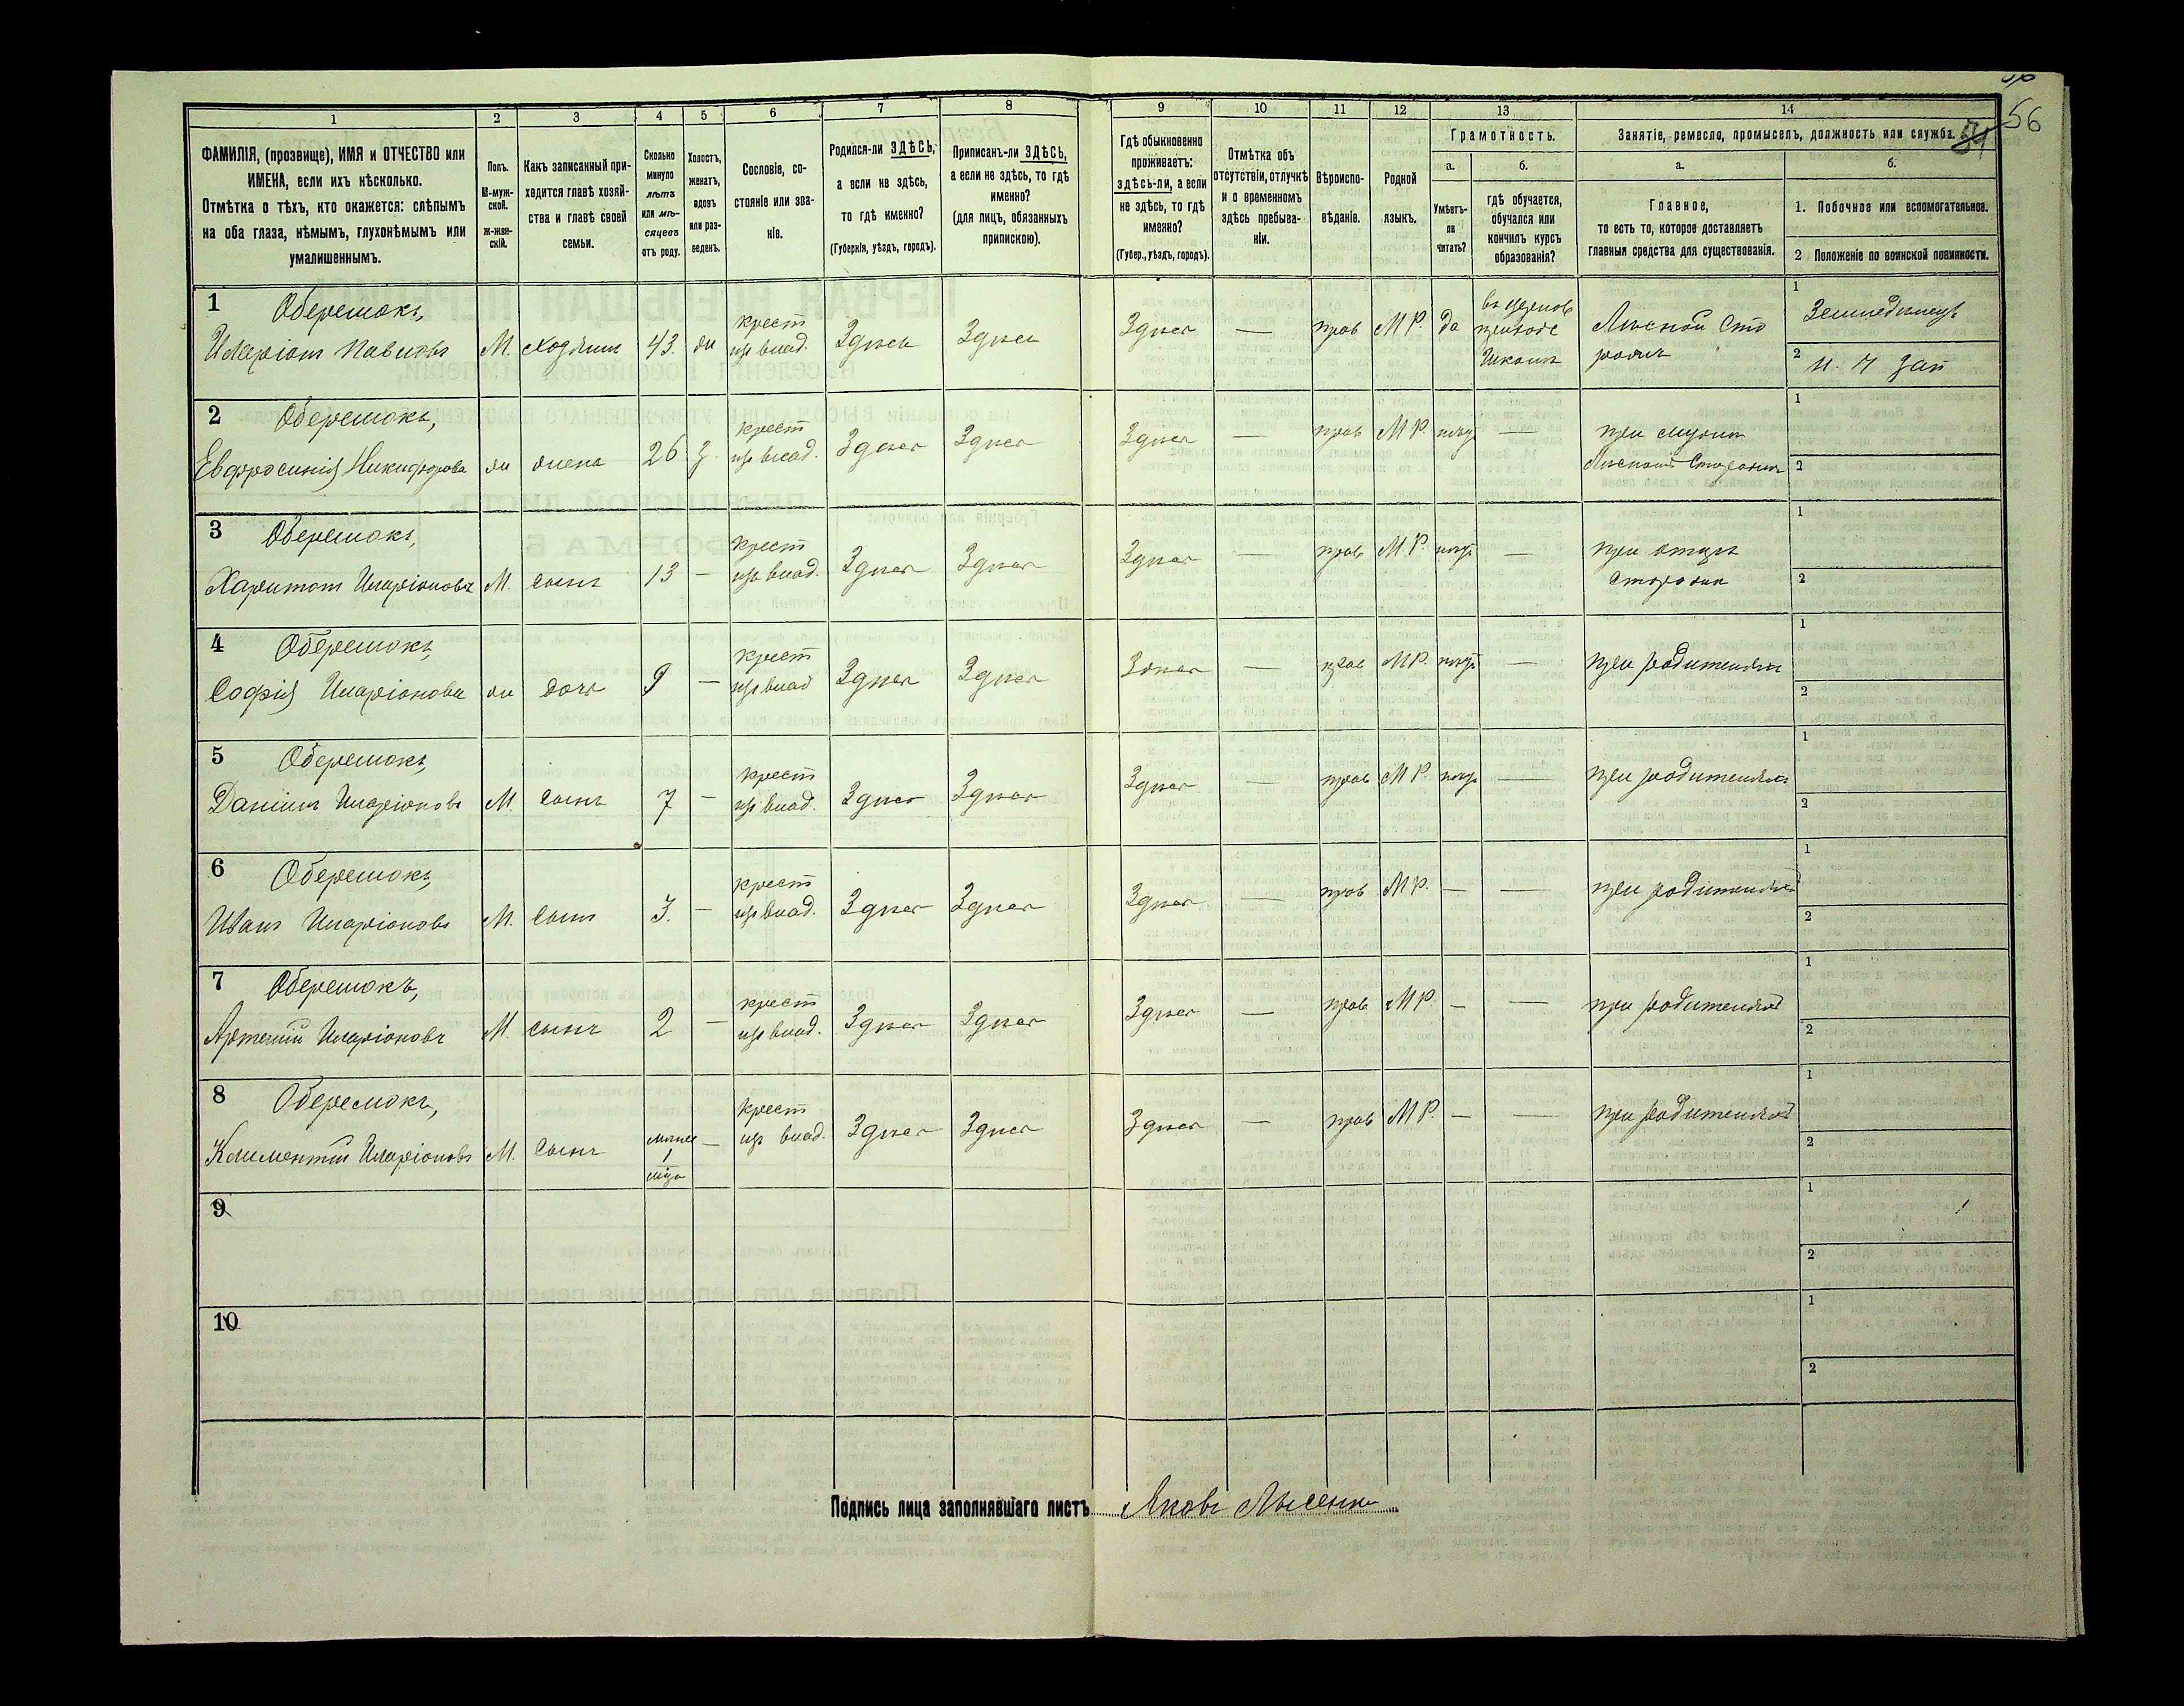 56
1 2 3 4 5 6 7 8 9 10 11 12 13 14
ФАМИЛІЯ, (прозвище), ИМЯ и ОТЧЕСТВО или
ИМЕНА, если ихъ нѣсколько.
Отмѣтка о тѣхъ, кто окажется: слѣпымъ
на оба глаза, нѣмымъ, глухонѣмымъ или
умалишеннымъ.
Полъ.
М-муж-
ской.
Ж-жен-
скій.
Какъ записанный при-
ходится главѣ хозяй-
ства и главѣ своей
семьи.
Сколько
минуло
лѣтъ
или мѣ-
сяцевъ
отъ роду.
Холостъ,
женатъ,
вдовъ
или раз-
веденъ.
Сословіе, со-
стояніе или зва-
ніе.
Родился-ли ЗДѢСЬ,
а если не здѣсь,
то гдѣ именно?
(Губернія, уѣздъ, городъ).
Приписанъ-ли ЗДѢСЬ,
а если не здѣсь, то гдѣ
именно?
(для лицъ, обязанныхъ
припискою).
Гдѣ обыкновенно
проживаетъ:
здѣсь-ли, а если
не здѣсь, то гдѣ
именно?
(Губер., уѣздъ, городъ).
Отмѣтка объ
отсутствіи, отлучкѣ
и о временномъ
здѣсь пребыва-
ніи.
Вѣроиспо-
вѣданіе.
Родной
языкъ.
Грамотность.
а.
Умѣетъ-
ли
читать?
б.
гдѣ обучается,
обучался или
кончилъ курсъ
образованія?
Занятіе, ремесло, промыселъ, должность или служба.
а.
Главное,
то есть то, которое доставляетъ
главныя средства для существованія.
б.
1. Побочное или вспомогательное.
2 Положеніе по воинской повинности.
1 Оберемокъ,
Иларіонъ Павловъ М. хозяинъ 43. ж крест изъ влад. Здѣсь Здѣсь Здѣсь — прав М.Р. да въ церков приходс школѣ Лѣсной Сто рожъ 1 Земледѣлецъ 2 н. ч зап
2 Оберемокъ,
Евфросинія Никифорова ж жена 26 з. крест изъ влад. Здѣсь Здѣсь Здѣсь — прав М.Р. нѣтъ — при мужѣ Лѣсной Сторожъ 1 2
3 Оберемокъ,
Харитонъ Иларіоновъ М. сынъ 13 — крест изъ влад. Здѣсь Здѣсь Здѣсь — прав М.Р. нѣтъ — при отцѣ Сторожѣ 1 2
4 Оберемокъ,
Софія Иларіонова ж дочь 9 — крест изъ влад Здѣсь Здѣсь Здѣсь — прав М.Р. нѣтъ — при родителяхъ 1 2
5 Оберемокъ,
Даніилъ Иларіоновъ М. сынъ 7 — крест изъ влад. Здѣсь Здѣсь Здѣсь — прав М.Р. нѣтъ — при родителяхъ 1 2
6 Оберемокъ,
Иванъ Иларіоновъ М. сынъ 3. — крест изъ влад. Здѣсь Здѣсь Здѣсь — прав М.Р. — — при родителяхъ 1 2
7 Оберемокъ,
Артемій Иларіоновъ М. сынъ 2 — крест изъ влад. Здѣсь Здѣсь Здѣсь — прав М.Р. — — при родителяхъ 1 2
8 Оберемокъ,
Климентій Иларіоновъ М. сынъ менѣе 1 мѣца — крест изъ влад. Здѣсь Здѣсь Здѣсь — прав М.Р. — — при родителяхъ 1 2
9 1 2
10 1 2
Подпись лица заполнявшаго листъ Яковъ Лысенко